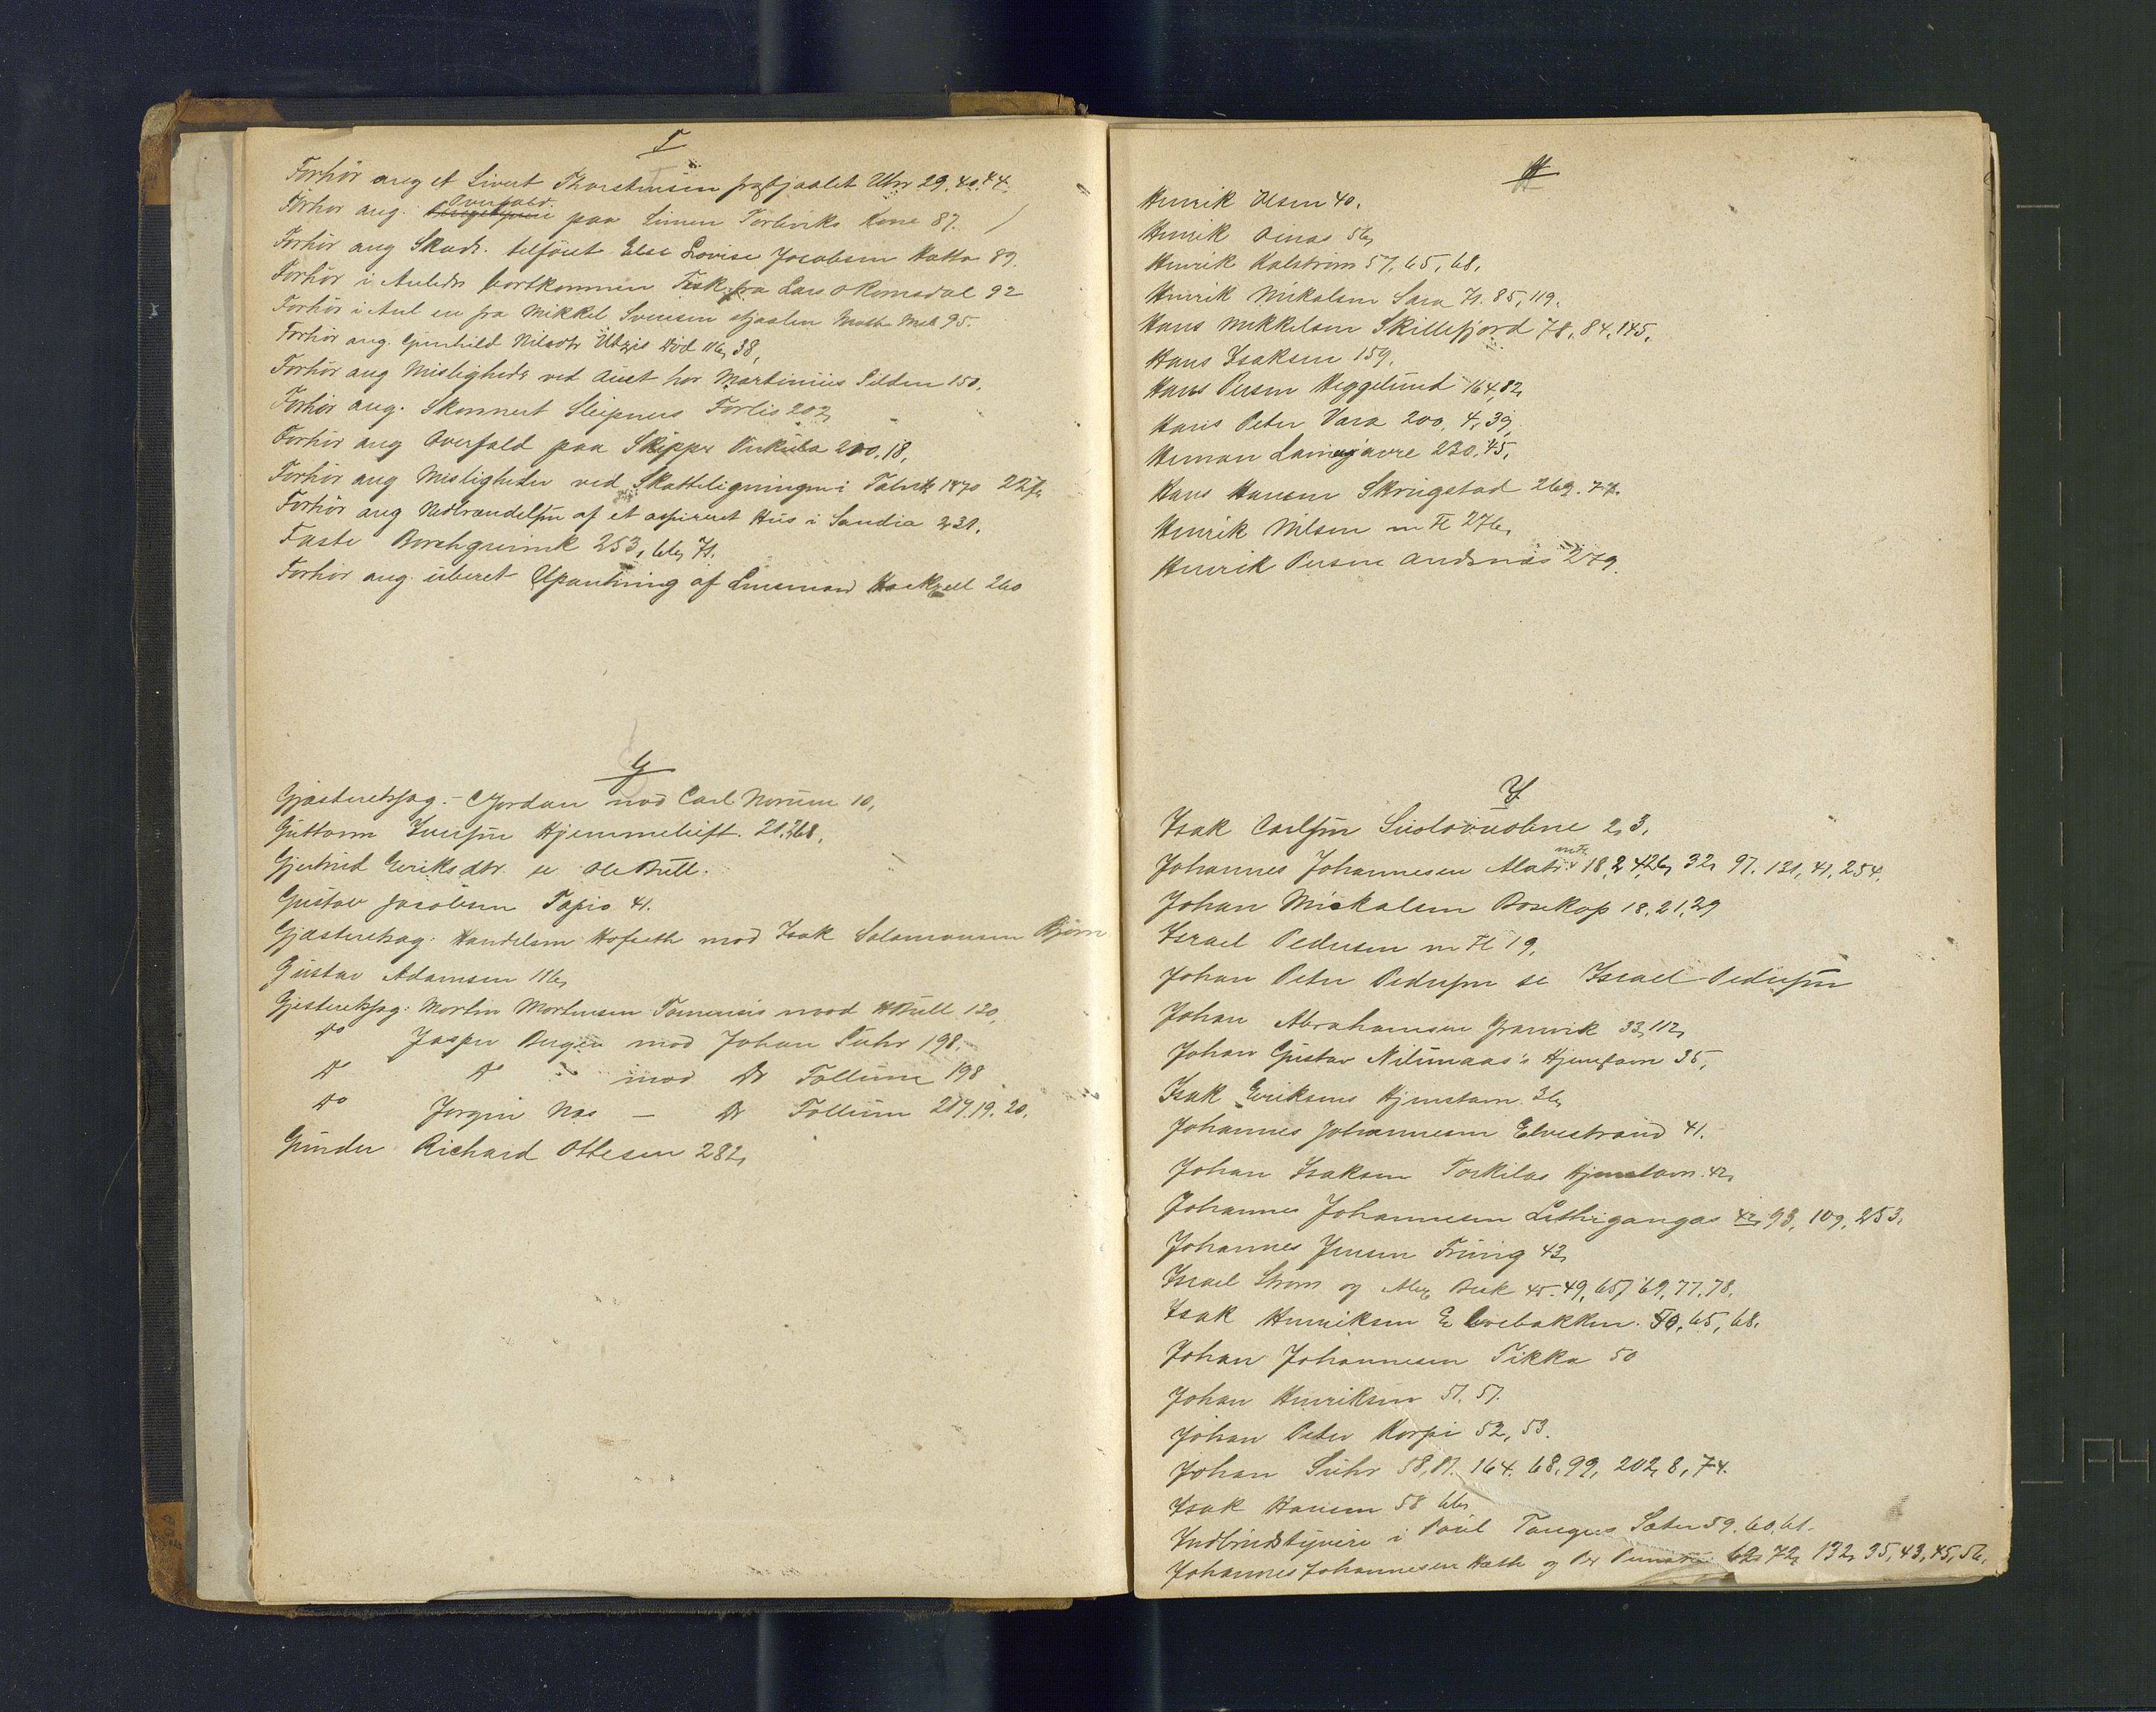 F
Forhör ang et Sivert Thorstensen frastjaalet Uhr 29.40.44.
Forhör ang. Overfald paa Simen Torbviks Kone 87.
Forhör ang Skade. tilföiet Else Lovise Jacobsen Hatta 89.
Forhör i Anledn bortkommen Fisk fra Lars O Romsdal 92
Forhör i Anl en fra Mikkel Svensen stjaalen Matte Mel 95.
Forhör ang. Gunhild Nilsdtr Utzis Död 116, 38,
Forhör ang Misligheder ved Auct hos Martinius Silden 150.
Forhör ang. Skonnert Sleipners Forlis 202,
Forhör ang Overfald paa Skipper 200.18,
Forhör ang Misligheder ved Skatteligningen i Talvik 1870 227,
Forhör ang Nedbrændelsen af et Hus i Sandia 231.
Faste Borchgrevink 253, 66, 71.
Forhör ang. Udpantning af Lensmand 260
G
Gjæsteretssag. - C Jordan mod Carl Norum 10,
Guttorm Iversen Hjemmelsift. 21.268.
Gjertrud Eriksdtr se Ole Bull.
Gustav Jacobsen Tapio 41.
Gjæsteretsag. Handelsm Hofseth mod Isak Salamonsen Björn
Gustav Adamsen 116,
Gjesteretssag: Morten Mortensen mod Bull 120,
Do Jasper Berger mod Johan Suhr 198.
Do Do mod Dr Tollum 198
Do Jörgen Nos — Dr Tollum 217.19.20.
Gunder Richard Ottesen 282,
H
Henrik Olsen 40.
Henrik Oinas 56,
Henrik Kalström 57, 65, 68,
Henrik Mikalsen Sara 71. 85, 119.
Hans Mikkelsen Skillefjord 78, 84, 145,
Hans Isaksen 159,
Hans Persen Heggelund 164,82,
Hans Peter Vara 200, 4, 39,
Herman Lainejavre 230.45.
Hans Hansen Skrugstad 269. 77.
Henrik Nilsen m Fl 276,
Henrik Persen Andsnæs 279.
I
Isak Carlsen Suolovuobme 2, 3.
Johannes Johannesen m Fl 18, 2 426, 32, 97. 131, 41, 254.
Johan Mickalsen Bosekop 18, 21, 29
Israel Pedersen m Fl 19,
Johan Peter Pedersen se Israel Pedersen
Johan Abrahamsen Granvik 33, 112,
Johan Gustav Nilimaas's Hjemstavn 35,
Isak Eriksens Hjemstavn. 36,
Johannes Johannesen Elvestrand 41.
Johan Isaksen Torkilas Hjemstavn. 42,
Johannes Johannesen Lethigangas 42, 93, 109, 253.
Johannes Jensen Tring 43,
Israel Strom og Alex Beck 45. 49, 65, 69, 77, 78.
Isak Henriksen Elvebakken. 50, 65, 68.
Johan Johannesen Tikka 50
Johan Henriksen 51. 57.
Johan Peter Korpi 52, 53.
Johan Suhr 58, 81. 164. 68, 99, 202, 8, 74.
Isak Hansen 58 66,
Indbrudstyveri i Poul Tangens Sæter 59. 60, 61.
Johannes Johannesen Hætta og Per 62, 72, 132, 35, 43, 45, 56,